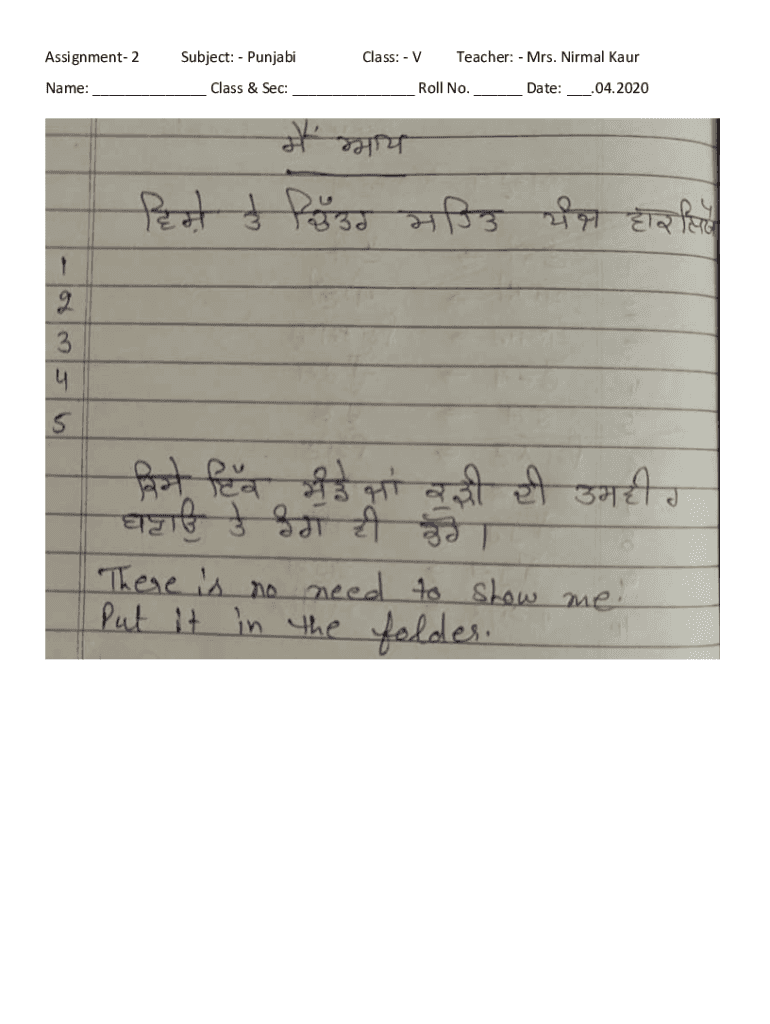 Assignment- 2 Subject: - Punjabi Class: - V Teacher: - Mrs. Nirmal Kaur
Name: ______________ Class & Sec: _______________ Roll No. ______ Date: ___.04.2020
ਮੈਂ ਆਪ
ਵਿਸ਼ੇ ਤੇ ਚਿੱਤਰ ਸਹਿਤ ਪੰਜ ਵਾਕ ਲਿਖੋ
1
2
3
4
5
ਕਿਸੇ ਇੱਕ ਮੁੰਡੇ ਜਾਂ ਕੁੜੀ ਦੀ ਤਸਵੀਰ
ਬਣਾਉ ਤੇ ਰੰਗ ਵੀ ਭਰੋ।
There is no need to show me.
Put it in the folder.